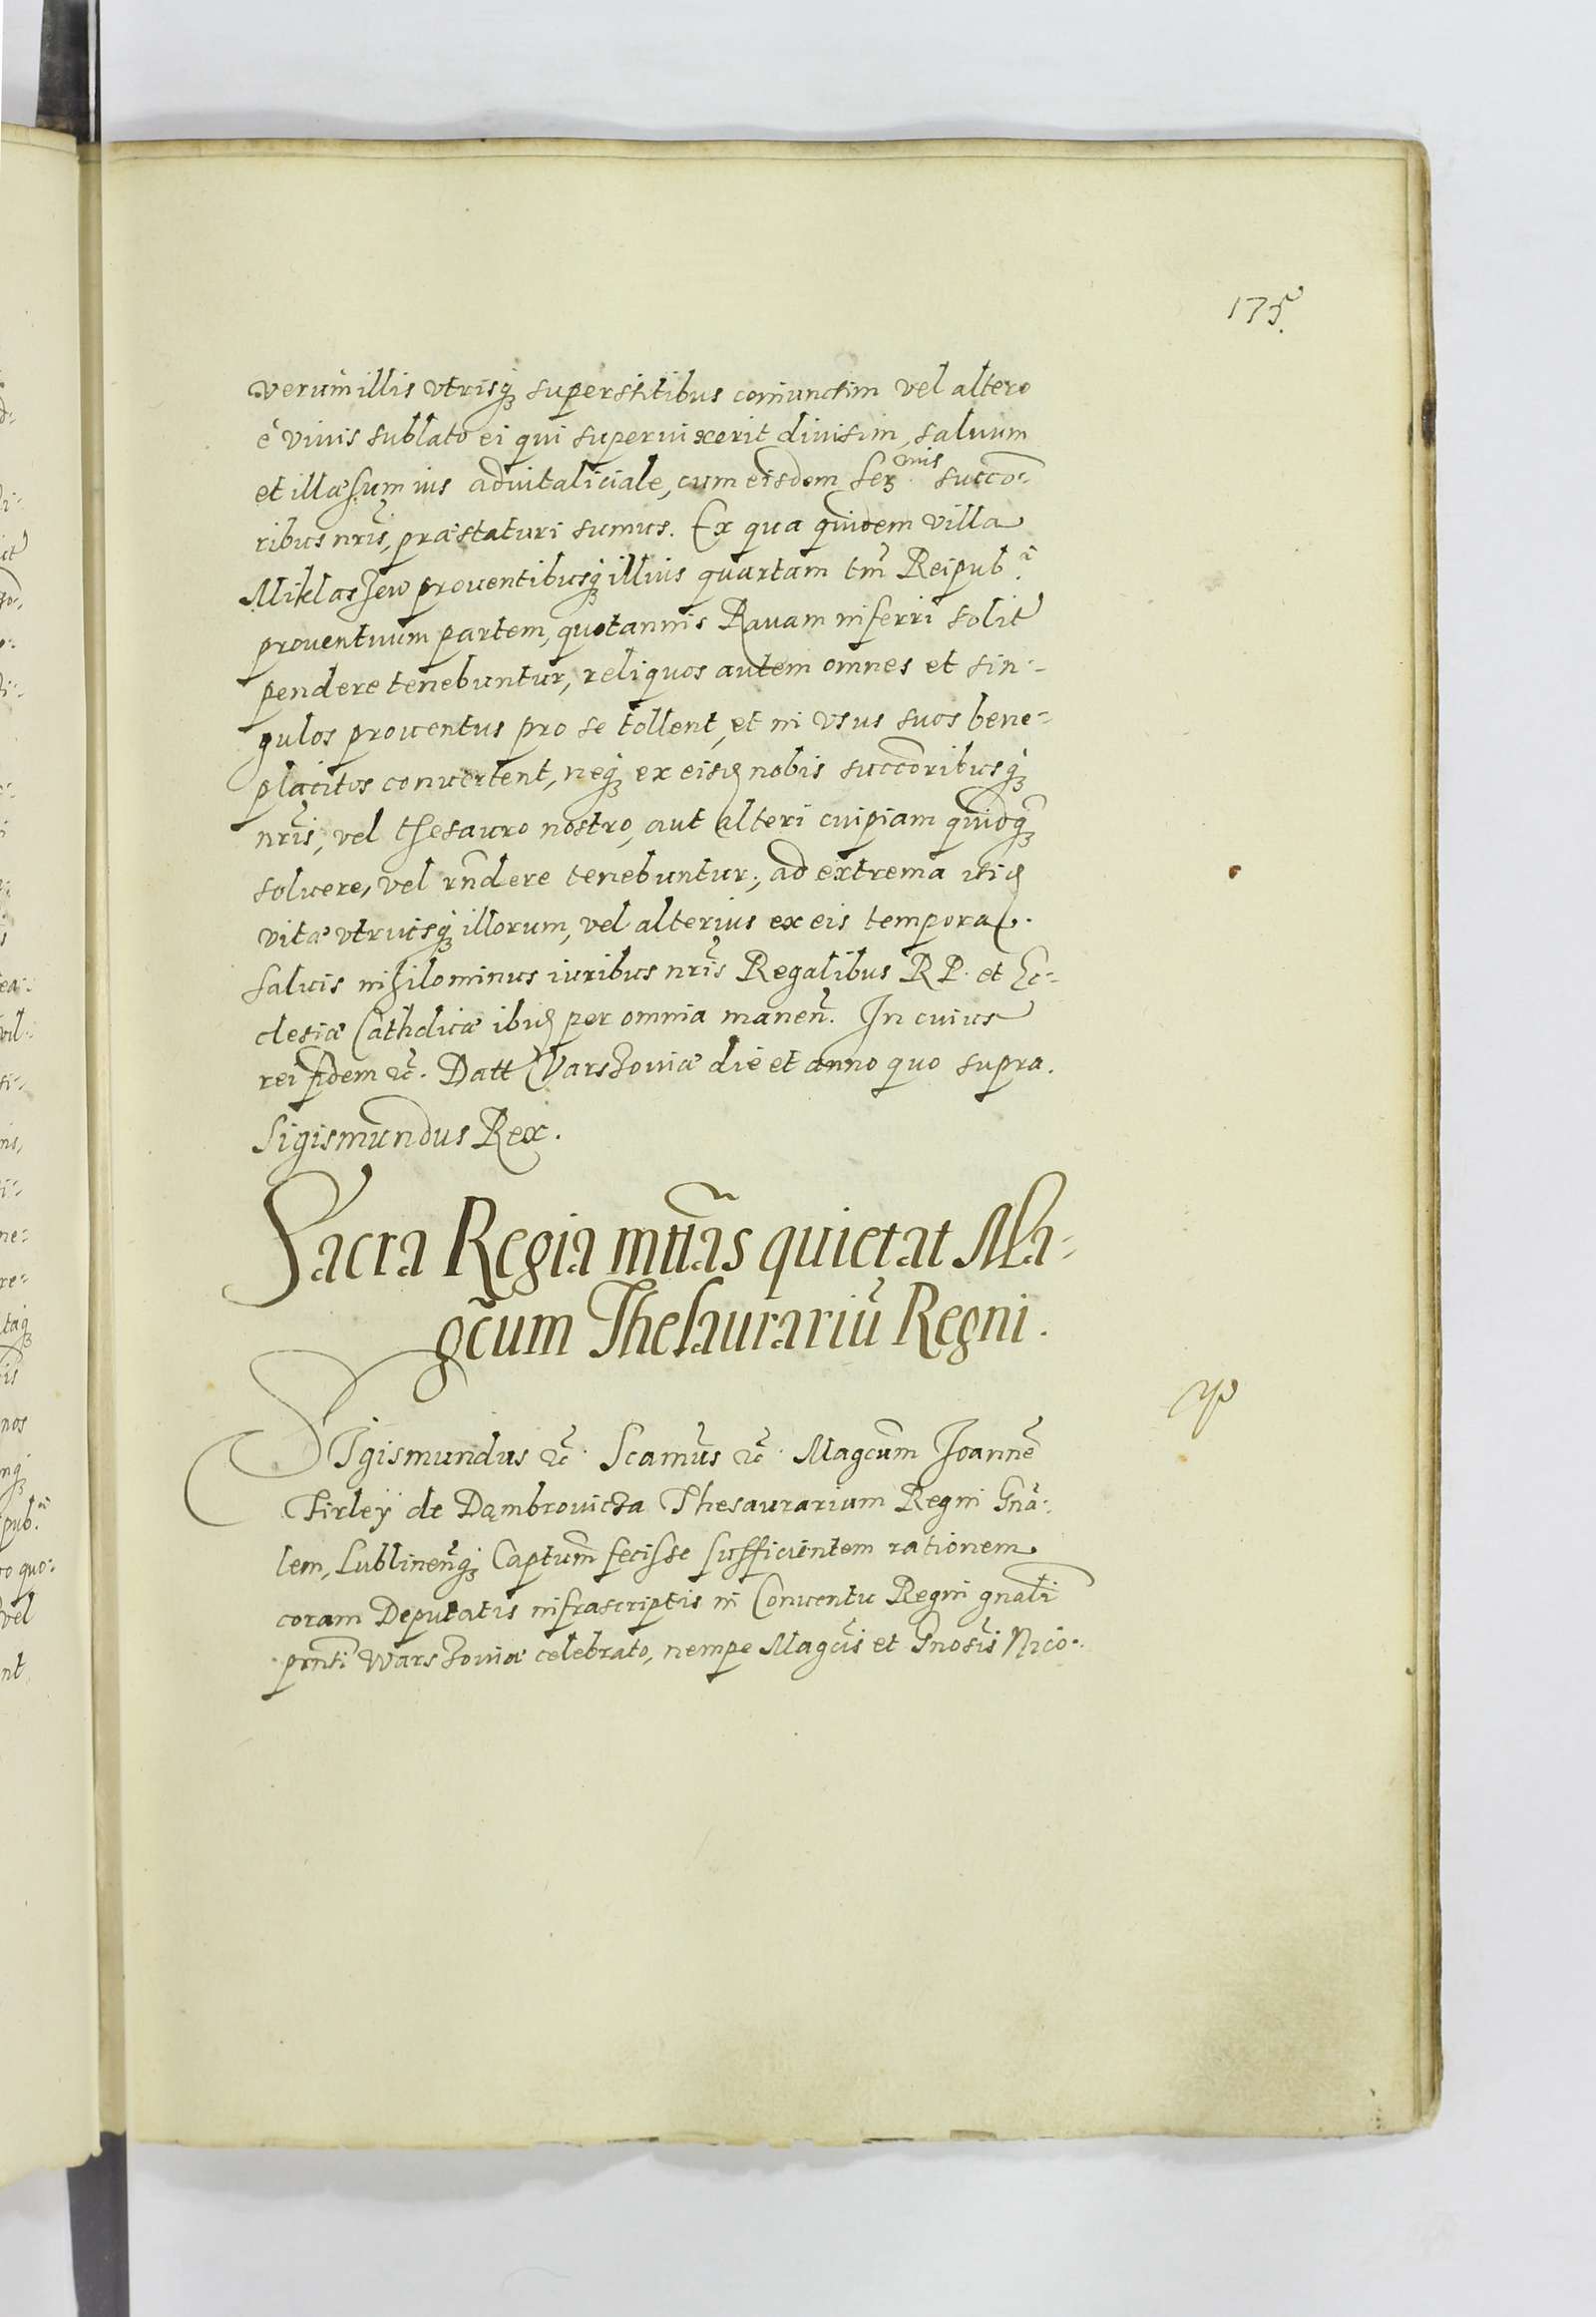 175.
verum illis vtrisq́ superstitibus coniunctim vel altero
è viuis sublato ei qui superuixerit diuisim, saluum
et illæsum ius aduitaliciale, cum eisdem Ser.mis succo-
ribus nr̃is, præstaturi sumus. Ex qua quidem villa
Miklaszew prouentibusq́ illius quartam tm̃ Reipub.æ
prouentuum partem, quotannis Rauam inferri solit
pendere tenebuntur, reliquos autem omnes et sin-
gulos prouentus pro se tollent, et in vsus suos bene-
placitos conuertent, neq́ ex eisd nobis succoribusq́
nr̃is, vel thesauro nostro, aut alteri cuipiam quidq́
soluere, vel rñdere tenebuntur, ad extrema
vitæ vtriusq́ illorum, vel alterius ex eis tempora.
Saluis nihilominus iuribus nr̃is Regalibus RP. et Ec-
clesiæ Catholicæ ibid per omnia maneñ. In cuius
rei fidem &c̃. Datt Varszouiæ die et anno quo supra.
Sigismundus Rex.
Sacra Regia mttãs quietat Ma-
gc̃um Thesaurariũ Regni.
SIgismundus &c̃. Scamus̃ &c̃. Magcum̃ Joannẽ
Firleÿ de Dąmbrouicza Thesaurarium Regni Gnã-
lem, Lublineñq́ Captum̃ fecisse sufficientem rationem
coram Deputatis infrascriptis in Conuentu Regni gnali
prnti Warszouiæ celebrato, nempe Magcis̃ et Gnosis̃ Nico-